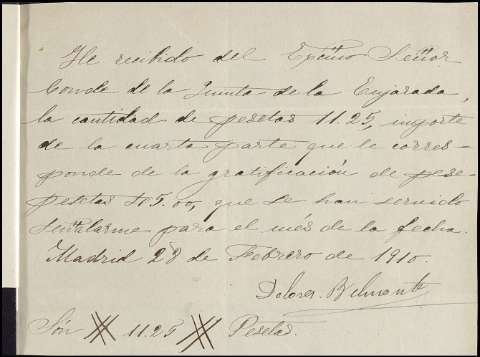 He recibido del Excmo Señor
Conde de la Quinta de la Enjarada,
la cantidad de pesetas 11.25, importe
de la cuarta parte que le corres-
ponde de la gratificación de pese-
pesetas 45.00, que se han servido
señalarme para el més de la fecha.
Madrid 28 de Febrero de 1910.
Dolores Belmonte
Són # 11.25 # Pesetas.